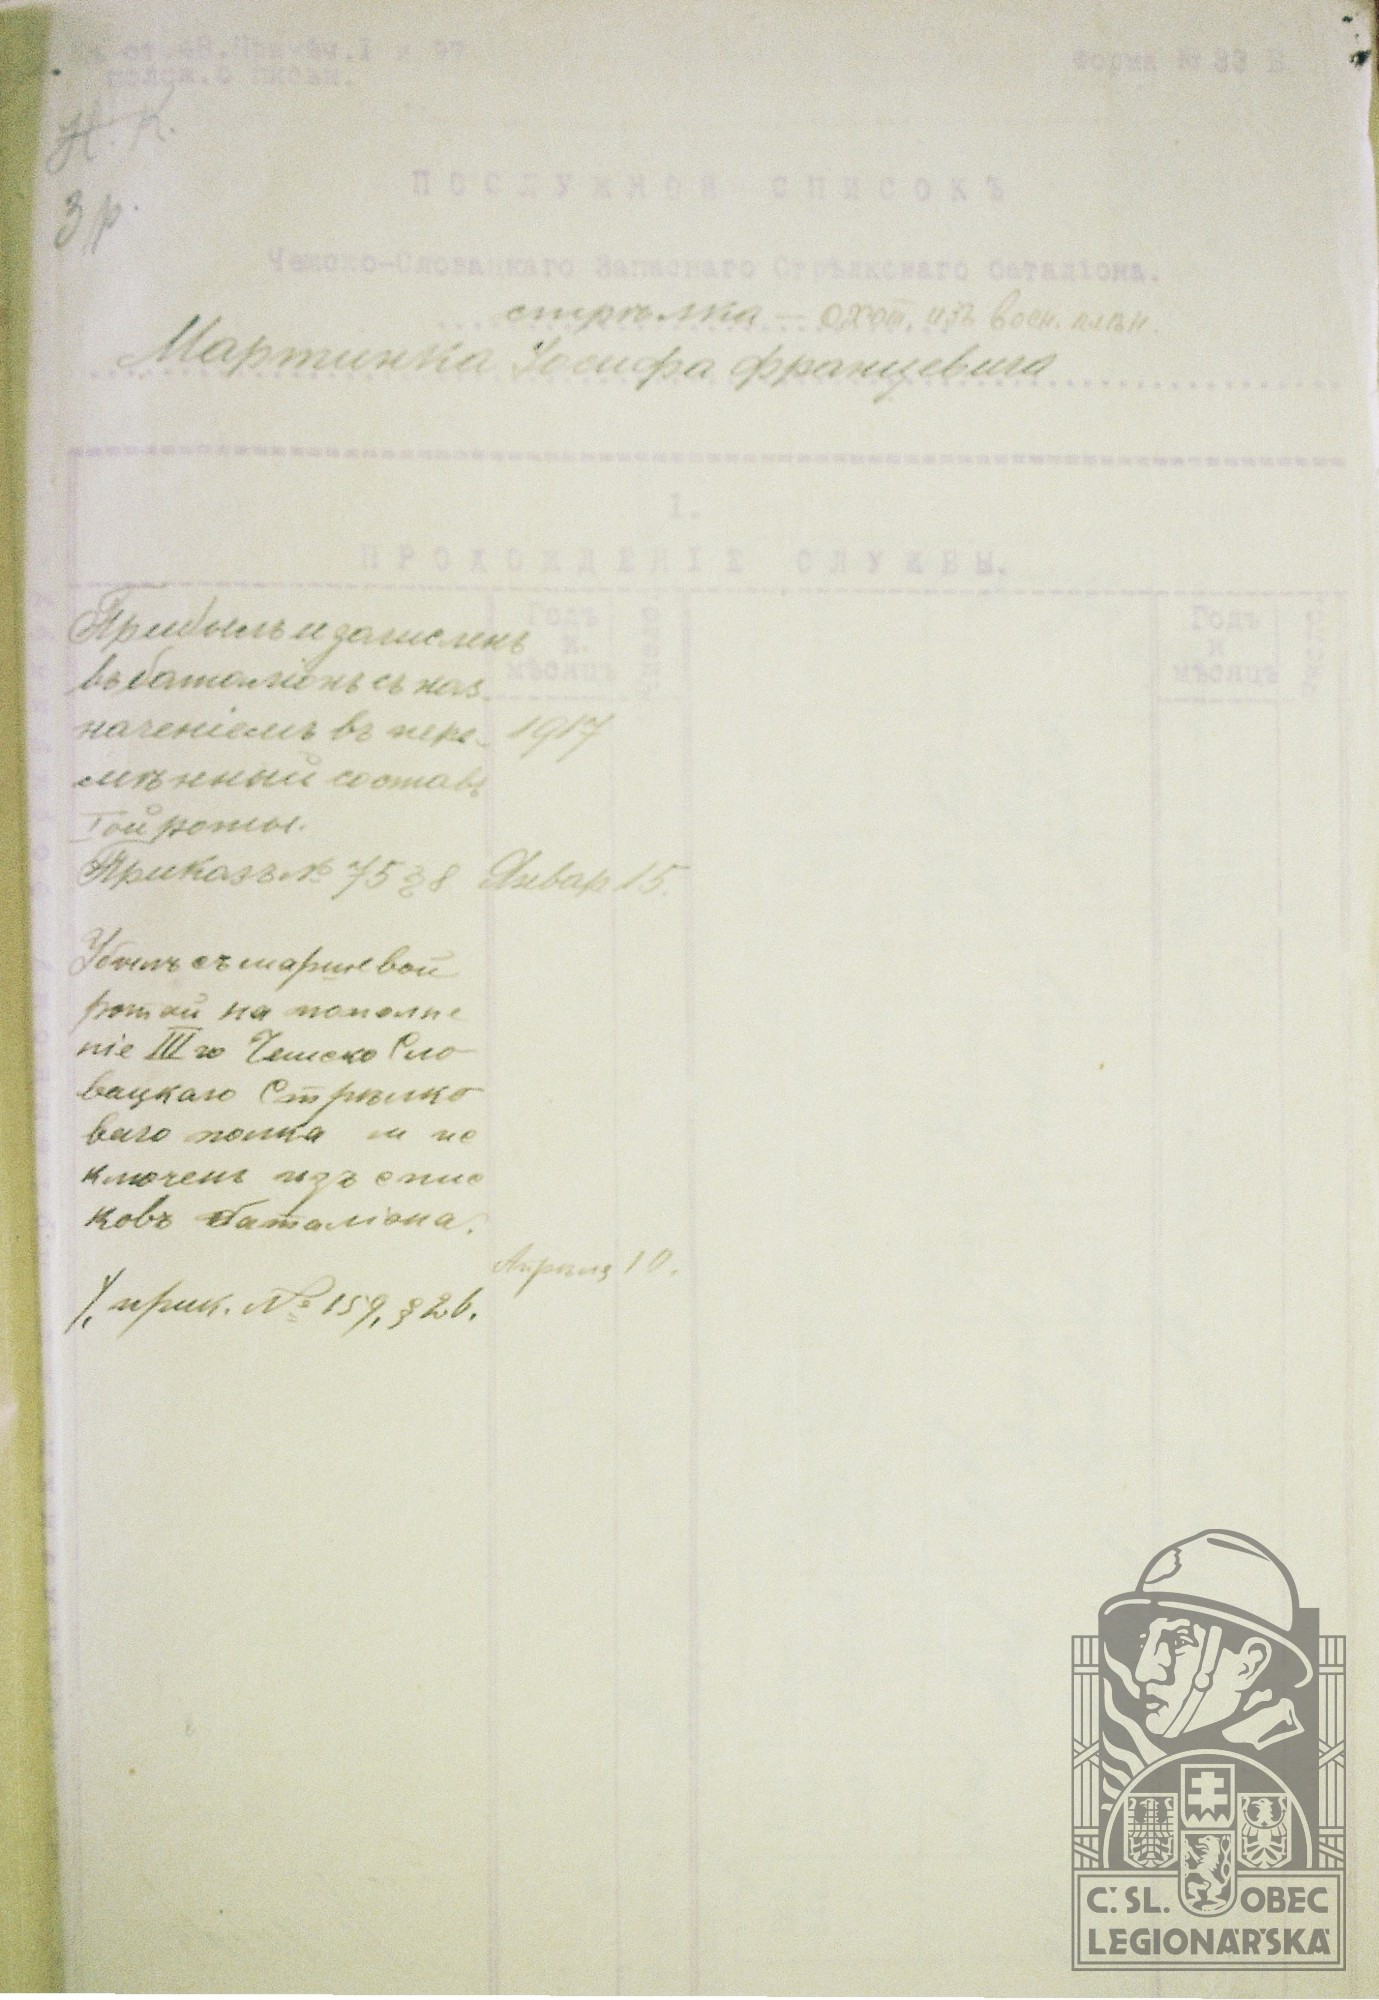 Форма № 33 Б.
Н. К.
3 р.
ПОСЛУЖНОЙ СПИСОКЪ
Чешско-Словацкаго Запаснаго Стрѣлковаго баталіона.
стрѣлка — охот. изъ воен. плѣн.
Мартинка Іосифа Францевича
I.
ПРОХОЖДЕНІЕ СЛУЖБЫ.
Годъ и мѣсяцъ
Число
Годъ и мѣсяцъ
Число
Прибылъ и зачисленъ
въ баталіонъ съ наз-
наченіемъ въ пере- 1917
мѣнный составъ
1 ой роты.
Приказъ № 75 § 8 Январ 15.
Убылъ съ маршевой
ротой на пополне
ніе III го Чешско Сло
вацкаго Стрѣлко
ваго полка и ис
ключенъ изъ спис
ковъ баталіона.
Апрѣля 10.
прик. № 159, § 2 б.
Č. SL. OBEC
LEGIONÁŘSKÁ